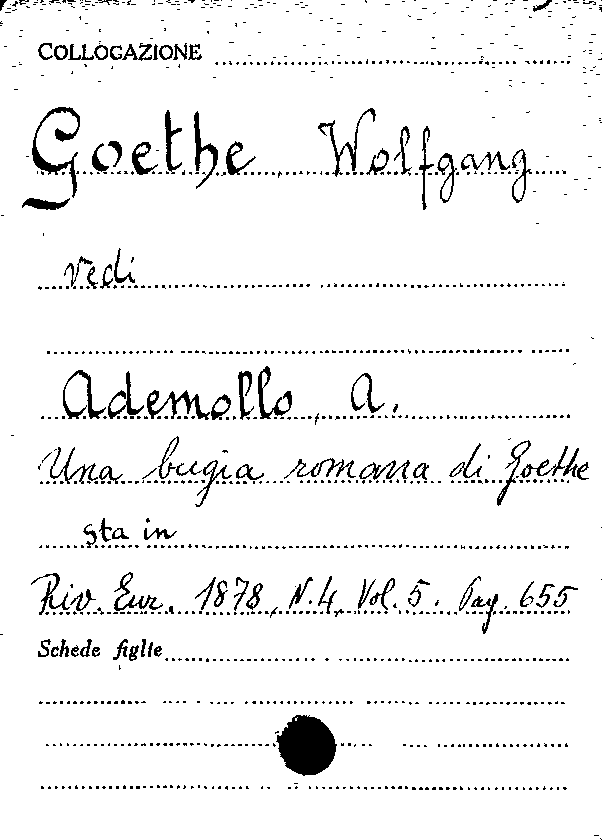 COLLOCAZIONE
Goethe Wolfgang
vedi
Ademollo, A.
Una bugia romana di Goethe
sta in
Riv. Eur. 1878, N.4, Vol. 5. Pag. 655
Schede figlie